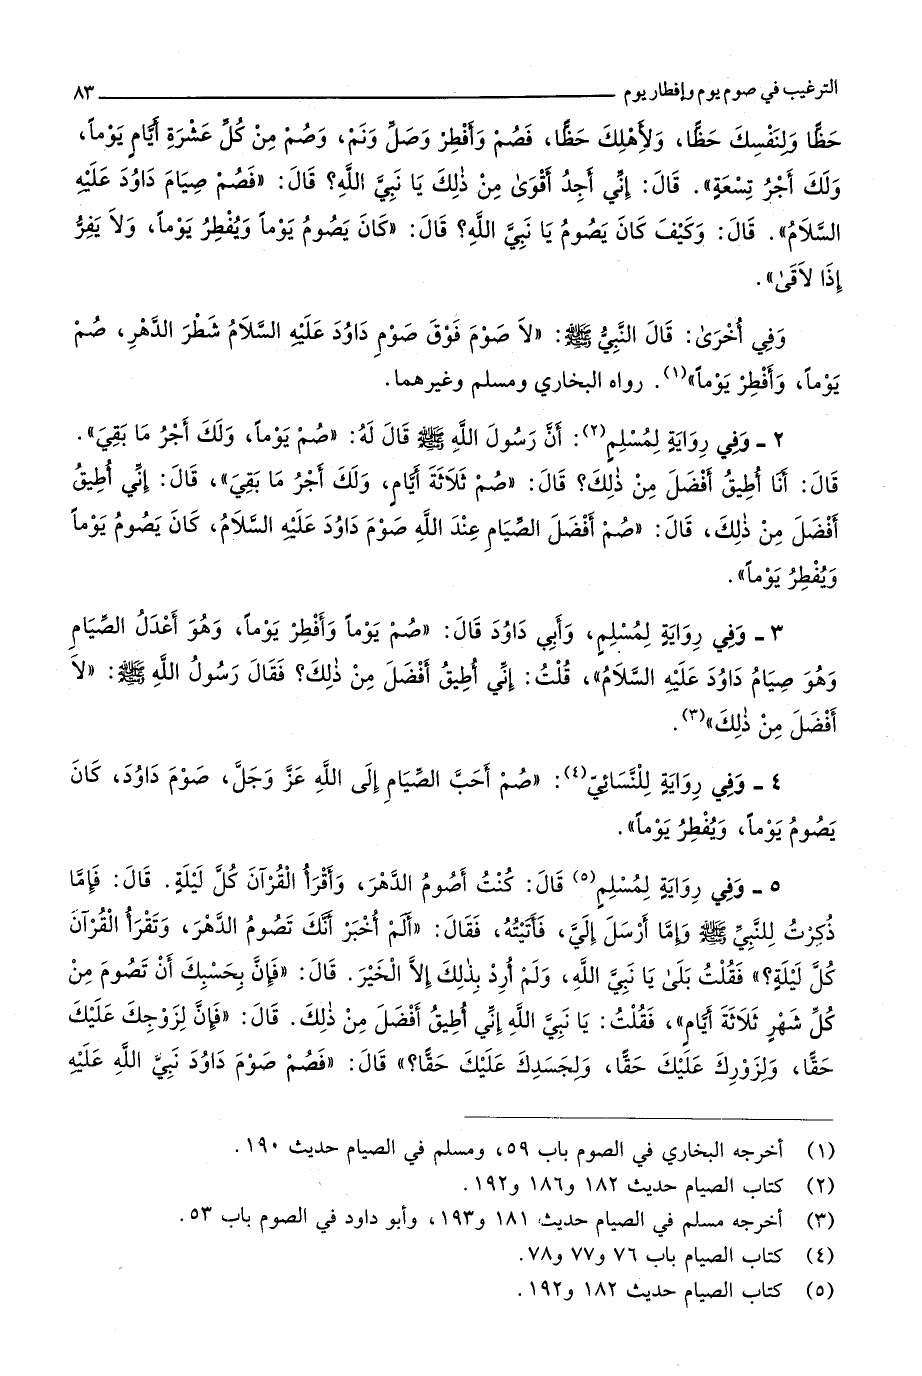 الترغيب في صوم يوم وإفطار يوم ٨٣
حَظًّا وَلِنَفْسِكَ حَظًّا، وَلأَهْلِكَ حَظًّا، فَصُمْ وَأَفْطِرْ وَصَلِّ وَنَمْ، وَصُمْ مِنْ كُلِّ عَشْرَةِ أَيَّامٍ يَوْماً،
وَلَكَ أَجْرُ تِسْعَةٍ». قَالَ: إِنِّي أَجِدُ أَقْوَىٰ مِنْ ذٰلِكَ يَا نَبِيَّ اللَّهِ؟ قَالَ: «فَصُمْ صِيَامَ دَاوُدَ عَلَيْهِ
السَّلاَمُ». قَالَ: وَكَيْفَ كَانَ يَصُومُ يَا نَبِيَّ اللَّهِ؟ قَالَ: «كَانَ يَصُومُ يَوْماً وَيُفْطِرُ يَوْماً، وَلاَ يَفِرُّ
إِذَا لاَقَىٰ».
وَفِي أُخْرَىٰ: قَالَ النَّبِيُّ ﷺ: «لاَ صَوْمَ فَوْقَ صَوْمِ دَاوُدَ عَلَيْهِ السَّلاَمُ شَطْرَ الدَّهْرِ، صُمْ
يَوْماً، وَأَفْطِرْ يَوْماً»(١). رواه البخاري ومسلم وغيرهما.
٢ ـ وَفِي رِوَايَةٍ لِمُسْلِمٍ(٢): أَنَّ رَسُولَ اللَّهِ ﷺ قَالَ لَهُ: «صُمْ يَوْماً، وَلَكَ أَجْرُ مَا بَقِيَ».
قَالَ: أَنَا أُطِيقُ أَفْضَلَ مِنْ ذٰلِكَ؟ قَالَ: «صُمْ ثَلاَثَةَ أَيَّامٍ، وَلَكَ أَجْرُ مَا بَقِيَ»، قَالَ: إِنِّي أُطِيقُ
أَفْضَلَ مِنْ ذٰلِكَ، قَالَ: «صُمْ أَفْضَلَ الصِّيَامِ عِنْدَ اللَّهِ صَوْمَ دَاوُدَ عَلَيْهِ السَّلاَمُ، كَانَ يَصُومُ يَوْماً
وَيُفْطِرُ يَوْماً».
٣ ـ وَفِي رِوَايَةٍ لِمُسْلِمٍ، وَأَبِي دَاوُدَ قَالَ: «صُمْ يَوْماً وَأَفْطِرْ يَوْماً، وَهُوَ أَعْدَلُ الصِّيَامِ
وَهُوَ صِيَامُ دَاوُدَ عَلَيْهِ السَّلاَمُ»، قُلْتُ: إِنِّي أُطِيقُ أَفْضَلَ مِنْ ذٰلِكَ؟ فَقَالَ رَسُولُ اللَّهِ ﷺ: «لاَ
أَفْضَلَ مِنْ ذٰلِكَ»(٣).
٤ ـ وَفِي رِوَايَةٍ لِلنَّسَائِيّ(٤): «صُمْ أَحَبَّ الصِّيَامِ إِلَى اللَّهِ عَزَّ وَجَلَّ، صَوْمَ دَاوُدَ، كَانَ
يَصُومُ يَوْماً، وَيُفْطِرُ يَوْماً».
٥ ـ وَفِي رِوَايَةٍ لِمُسْلِمٍ(٥) قَالَ: كُنْتُ أَصُومُ الدَّهْرَ، وَأَقْرَأُ الْقُرْآنَ كُلَّ لَيْلَةٍ. قَالَ: فَإِمَّا
ذُكِرْتُ لِلنَّبِيِّ ﷺ وَإِمَّا أَرْسَلَ إِلَيَّ، فَأَتَيْتُهُ، فَقَالَ: «أَلَمْ أُخْبَرْ أَنَّكَ تَصُومُ الدَّهْرَ، وَتَقْرَأُ الْقُرْآنَ
كُلَّ لَيْلَةٍ؟» فَقُلْتُ بَلَىٰ يَا نَبِيَّ اللَّهِ، وَلَمْ أُرِدْ بِذٰلِكَ إِلاَّ الْخَيْرَ. قَالَ: «فَإِنَّ بِحَسْبِكَ أَنْ تَصُومَ مِنْ
كُلِّ شَهْرٍ ثَلاَثَةَ أَيَّامٍ»، فَقُلْتُ: يَا نَبِيَّ اللَّهِ إِنِّي أُطِيقُ أَفْضَلَ مِنْ ذٰلِكَ. قَالَ: «فَإِنَّ لِزَوْجِكَ عَلَيْكَ
حَقًّا، وَلِزَوْرِكَ عَلَيْكَ حَقًّا، وَلِجَسَدِكَ عَلَيْكَ حَقًّا؟» قَالَ: «فَصُمْ صَوْمَ دَاوُدَ نَبِيَّ اللَّهِ عَلَيْهِ
(١) أخرجه البخاري في الصوم باب ٥٩، ومسلم في الصيام حديث ١٩٠.
(٢) كتاب الصيام حديث ١٨٢ و١٨٦ و١٩٢.
(٣) أخرجه مسلم في الصيام حديث ١٨١ و١٩٣، وأبو داود في الصوم باب ٥٣.
(٤) كتاب الصيام باب ٧٦ و٧٧ و٧٨.
(٥) كتاب الصيام حديث ١٨٢ و١٩٢.